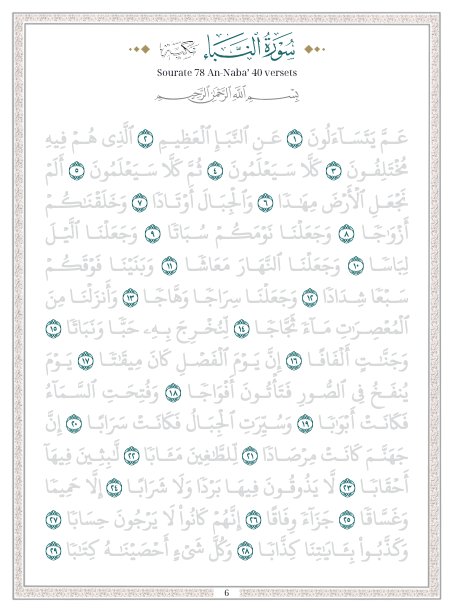 سُورَةُ ٱلنَّبَإِ مَكِّيَّة
Sourate 78 An-Naba' 40 versets
بِسْمِ ٱللَّهِ ٱلرَّحْمَٰنِ ٱلرَّحِيمِ
عَمَّ يَتَسَآءَلُونَ ١ عَنِ ٱلنَّبَإِ ٱلْعَظِيمِ ٢ ٱلَّذِى هُمْ فِيهِ
مُخْتَلِفُونَ ٣ كَلَّا سَيَعْلَمُونَ ٤ ثُمَّ كَلَّا سَيَعْلَمُونَ ٥ أَلَمْ
نَجْعَلِ ٱلْأَرْضَ مِهَٰدًا ٦ وَٱلْجِبَالَ أَوْتَادًا ٧ وَخَلَقْنَٰكُمْ
أَزْوَٰجًا ٨ وَجَعَلْنَا نَوْمَكُمْ سُبَاتًا ٩ وَجَعَلْنَا ٱلَّيْلَ
لِبَاسًا ١٠ وَجَعَلْنَا ٱلنَّهَارَ مَعَاشًا ١١ وَبَنَيْنَا فَوْقَكُمْ
سَبْعًا شِدَادًا ١٢ وَجَعَلْنَا سِرَاجًا وَهَّاجًا ١٣ وَأَنزَلْنَا مِنَ
ٱلْمُعْصِرَٰتِ مَآءً ثَجَّاجًا ١٤ لِّنُخْرِجَ بِهِۦ حَبًّا وَنَبَاتًا ١٥
وَجَنَّٰتٍ أَلْفَافًا ١٦ إِنَّ يَوْمَ ٱلْفَصْلِ كَانَ مِيقَٰتًا ١٧ يَوْمَ
يُنفَخُ فِى ٱلصُّورِ فَتَأْتُونَ أَفْوَاجًا ١٨ وَفُتِحَتِ ٱلسَّمَآءُ
فَكَانَتْ أَبْوَٰبًا ١٩ وَسُيِّرَتِ ٱلْجِبَالُ فَكَانَتْ سَرَابًا ٢٠ إِنَّ
جَهَنَّمَ كَانَتْ مِرْصَادًا ٢١ لِّلطَّٰغِينَ مَـَٔابًا ٢٢ لَّٰبِثِينَ فِيهَآ
أَحْقَابًا ٢٣ لَّا يَذُوقُونَ فِيهَا بَرْدًا وَلَا شَرَابًا ٢٤ إِلَّا حَمِيمًا
وَغَسَّاقًا ٢٥ جَزَآءً وِفَاقًا ٢٦ إِنَّهُمْ كَانُوا۟ لَا يَرْجُونَ حِسَابًا ٢٧
وَكَذَّبُوا۟ بِـَٔايَٰتِنَا كِذَّابًا ٢٨ وَكُلَّ شَىْءٍ أَحْصَيْنَٰهُ كِتَٰبًا ٢٩
6